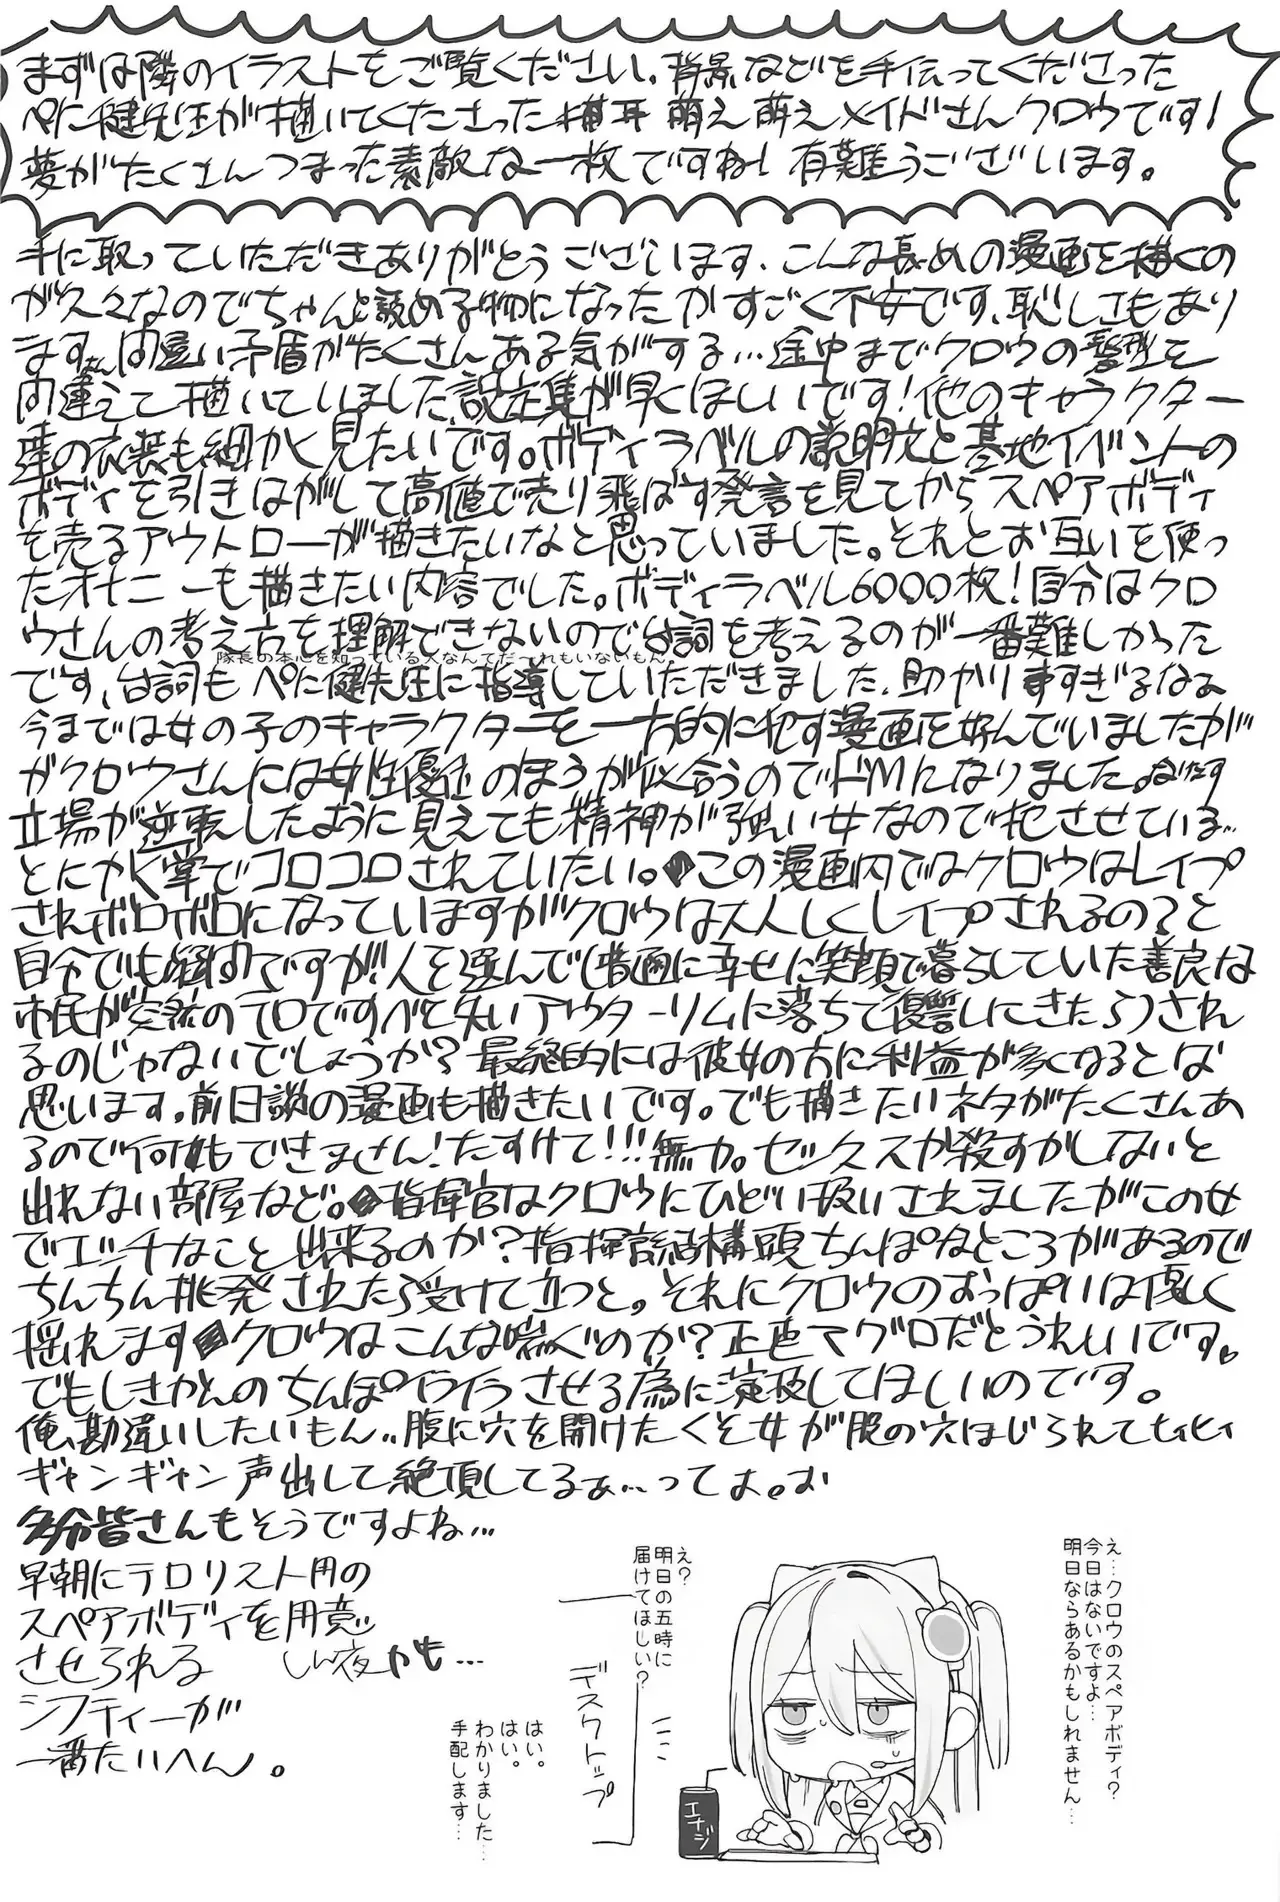 まずは隣のイラストをご覧ください。背景などを手伝ってくださった
ぺに健先生が描いてくださった猫耳萌え萌えメイドさんクロウです!
夢がたくさんつまった素敵な一枚ですね!有難うございます。
手に取っていただきありがとうございます、こんな長めの漫画を描くの
が久々なのでちゃんと読める物になったかすごく不安です、恥しさもあり
ます。間違い矛盾がたくさんある気がする…途中までクロウの髪型を
間違えて描いていました設定集が早くほしいです!他のキャラクター
達の衣装も細かく見たいです。ボディラベルの説明文と基地イベントの
ボディを引きはがして高値で売り飛ばす発言を見てからスペアボディ
を売るアウトローが描きたいなと思っていました。それとお互いを使っ
たオナニーも描きたい内容でした。ボディラベル6000枚!自分はクロ
ウさんの考え方を理解できないので台詞を考えるのが一番難しかった
隊長の本心を知っている人なんてだ〜れもいないもん。
です、台詞もぺに健先生に指導していただきました、助かりますぎるなぁ
今までは女の子のキャラクターを一方的に犯す漫画を好んでいましたが
がクロウさんには女性優位のほうが似合うのでドMになりました。
立場が逆転したように見えても精神が強い女なので犯させている…
とにかく掌でコロコロされていたい。◆この漫画内ではクロウはレイプ
されボロボロになっていますがクロウは大人しくレイプされるの?と
自分でも疑問ですが!人を選んで(普通に幸せに笑顔で暮らしていた善良な
市民が突然のテロですべて失いアウターリムに落ちて復讐しにきたら)され
るのじゃないでしょうか?最終的には彼女の方に利益が多くなるとは
思います。前日談の漫画も描きたいです。でも描きたいネタがたくさんあ
るので何もできません!たすけて!!!無力。セックスか殺すかしないと
出れない部屋など。◆指揮官はクロウにひどい扱いされましたがこの女
でエッチなこと出来るのか?指揮官結構頭ちんぽなところがあるので
ちんちん挑発されたら受けて立つと。それにクロウのおっぱいは優しく
揺れます◆クロウはこんな喘ぐのか?正直マグロだとうれしいです。
でもしきかんのちんぽイライラさせる為に演技してほしいのです。
俺、勘違いしたいもん..腹に穴を開けたくそ女が股の穴ほじられてヒィヒィ
ギャンギャン声出して絶頂してるぁ…ってよ。お
多分皆さんもそうですよね…
早朝にテロリスト用の
スペアボディを用意
させられる
しん夜かも…
シフティーが
一番たいへん。
え…クロウのスペアボディ?
今日はないですよ…
明日ならあるかもしれません…
え?
明日の五時に
届けてほしい?
デスクトップ
はい。
はい。
わかりました…
手配します…
エナジ